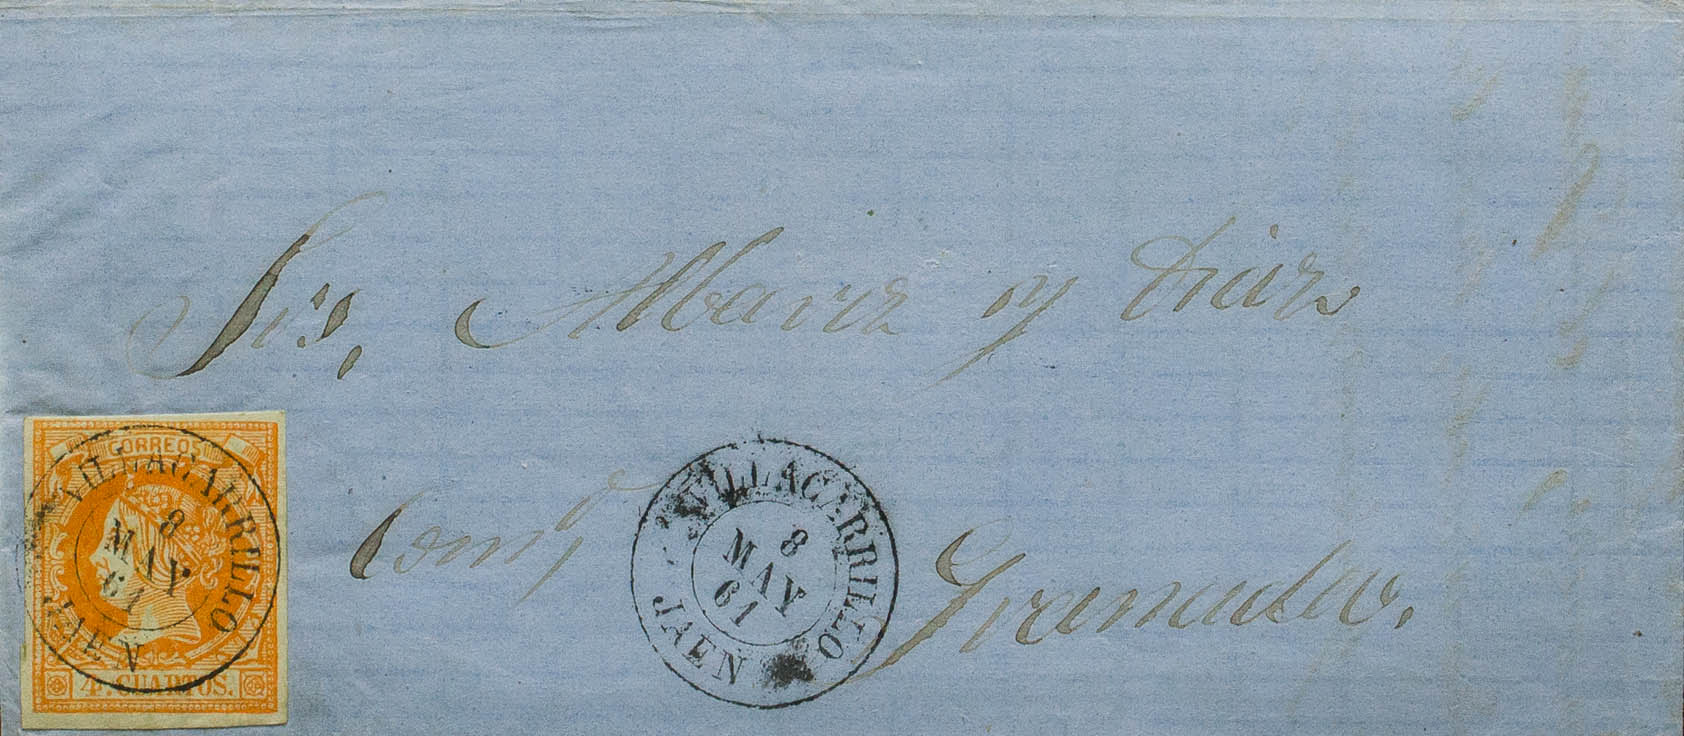 Srs, Alvarez y Diaz
Granada.
CORREOS
VILLACARRILLO
8
MAY
61
JAEN
4 CUARTOS.
VILLACARRILLO
8
MAY
61
JAEN